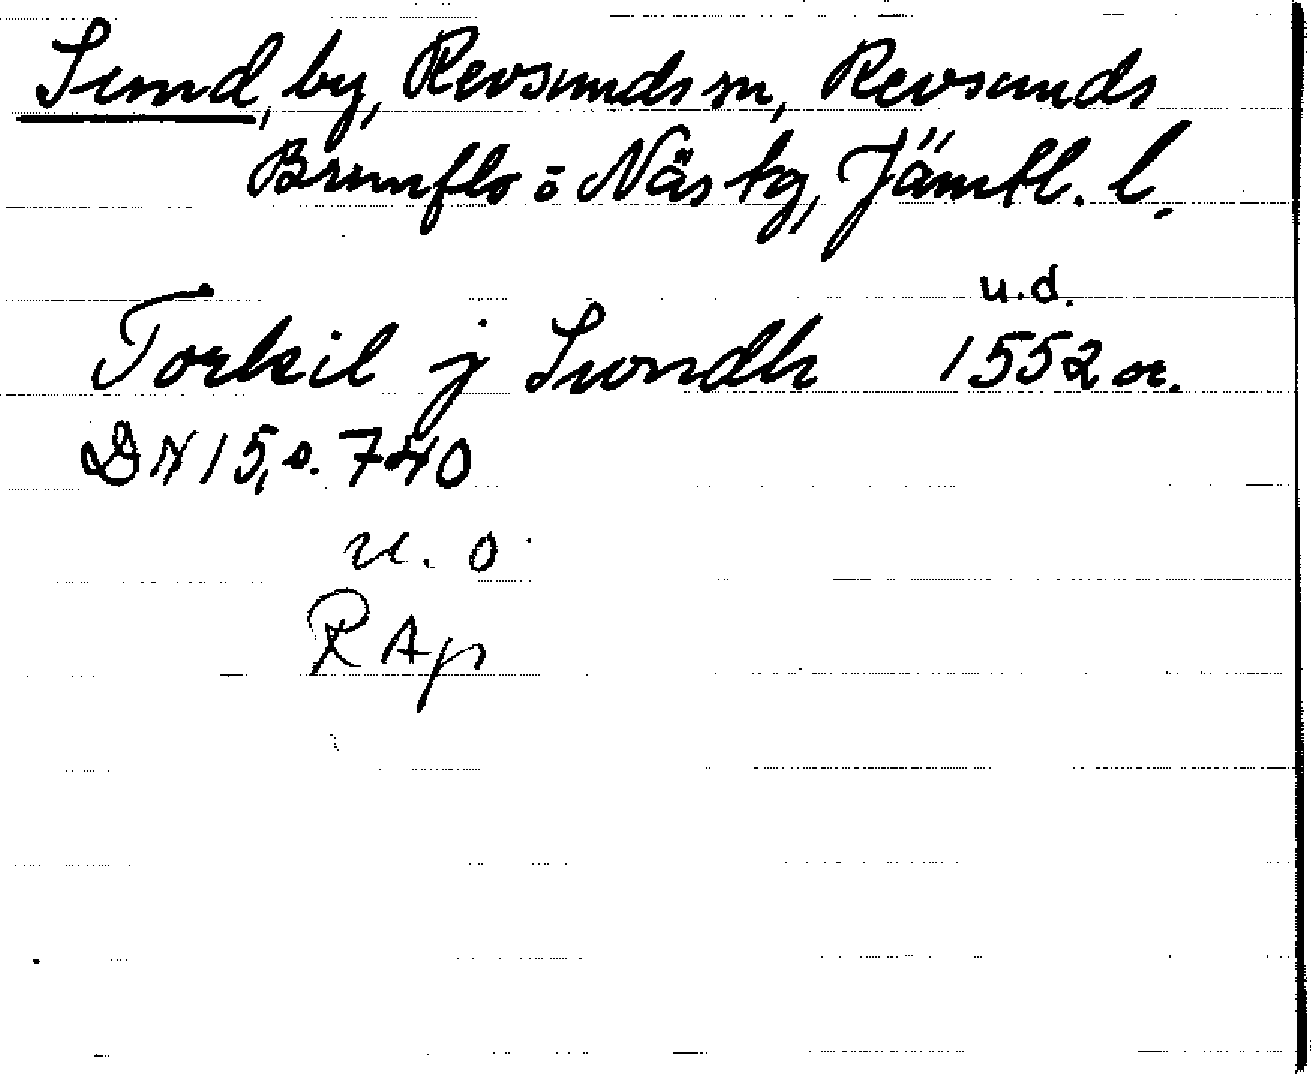 Sund, by, Revsunds sn, Revsunds
Brunflo o Näs tg, Jämtl. l.
u.d.
Torkil j Swndh 1552 or.
DN 15, s. 740
u. o.
RAp